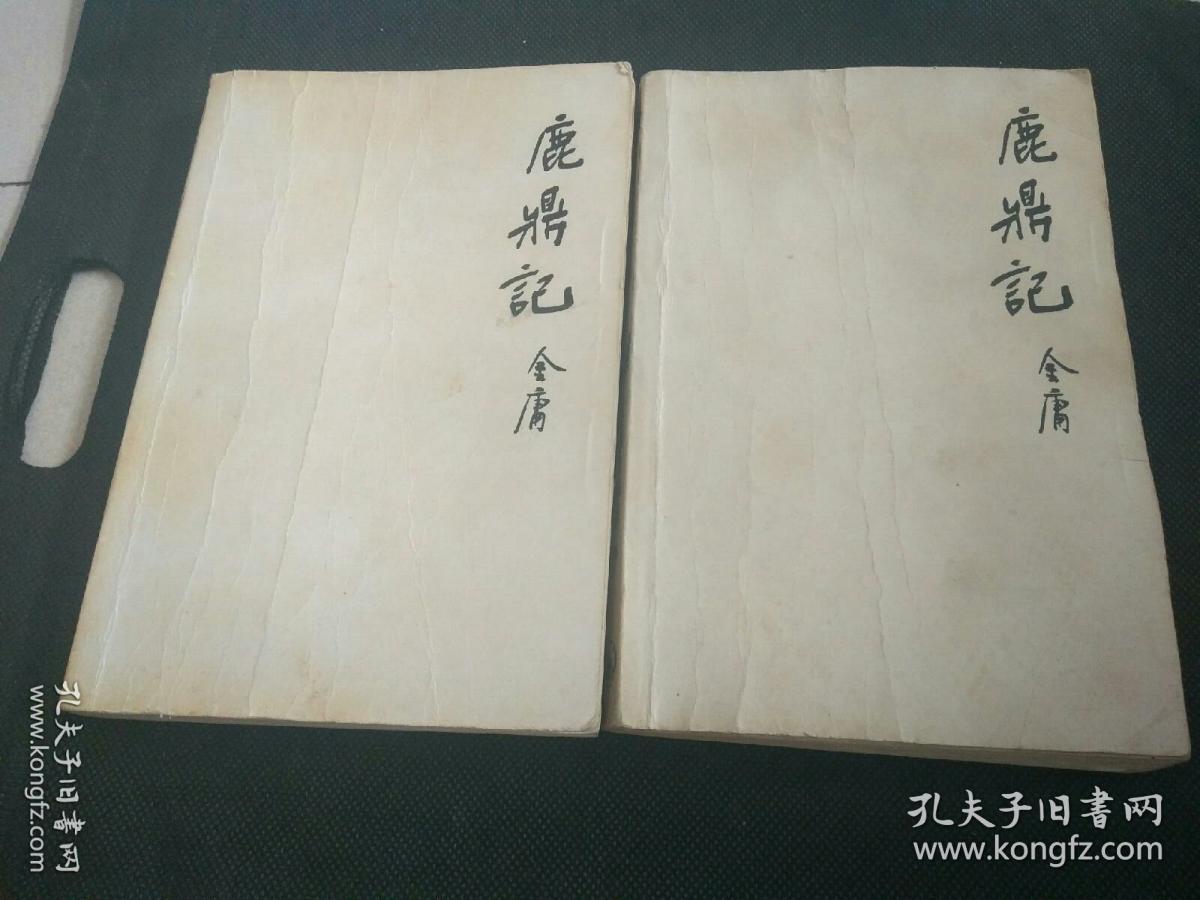 鹿鼎記
金庸
鹿鼎記
金庸
孔夫子旧書网
www.kongfz.com
孔夫子旧書网
www.kongfz.com